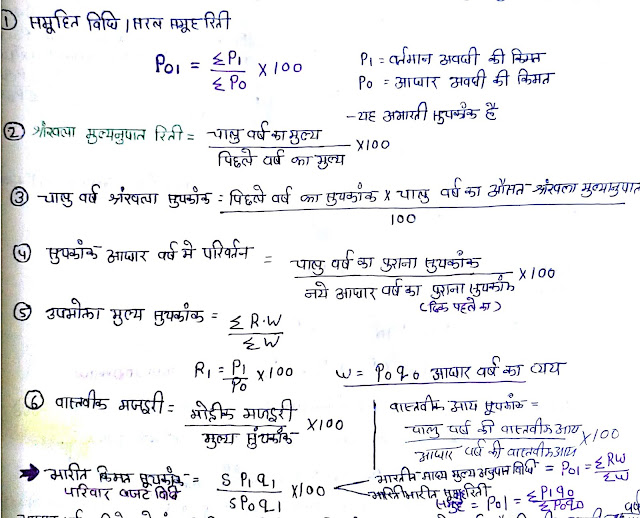 ① समूहित विधि / सरल समूह रिती
P₀₁ = ΣP₁ / ΣP₀ × 100
P₁ = वर्तमान अवधी की किमत
P₀ = आधार अवधी की किमत
- यह अभारती सुचकाँक है
② श्रंखला मुल्यनुपात रिती = चालु वर्ष का मुल्य / पिछले वर्ष का मुल्य × 100
③ चालु वर्ष श्रंखला सुचकाँक = पिछले वर्ष का सुचकाँक × चालु वर्ष का औसत श्रंखला मुल्यानुपात / 100
④ सुचकाँक आधार वर्ष मे परिवर्तन = चालु वर्ष का पुराना सुचकाँक / नये आधार वर्ष का पुराना सुचकाँक × 100
⑤ उपभोक्ता मुल्य सुचकाँक = ΣR.W / ΣW
R₁ = P₁ / P₀ × 100
W = P₀q₀ आधार वर्ष का व्यय
⑥ वास्तवीक मजदुरी = मोद्रीक मजदुरी / मुल्य सुचकाँक × 100
वास्तवीक आय सुचकाँक =
चालु वर्ष की वास्तवीक आय / आधार वर्ष की वास्तवीक आय × 100
→ भारीत किमत सुचकाँक = SP₁q₁ / SP₀q₁ × 100
परिवार बजट विधि
भारतीत माध्य मुल्य अनुपात विधि = P₀₁ = ΣRW / ΣW
समूहरिती
= P₀₁ = ΣP₁q₀ / ΣP₀q₀